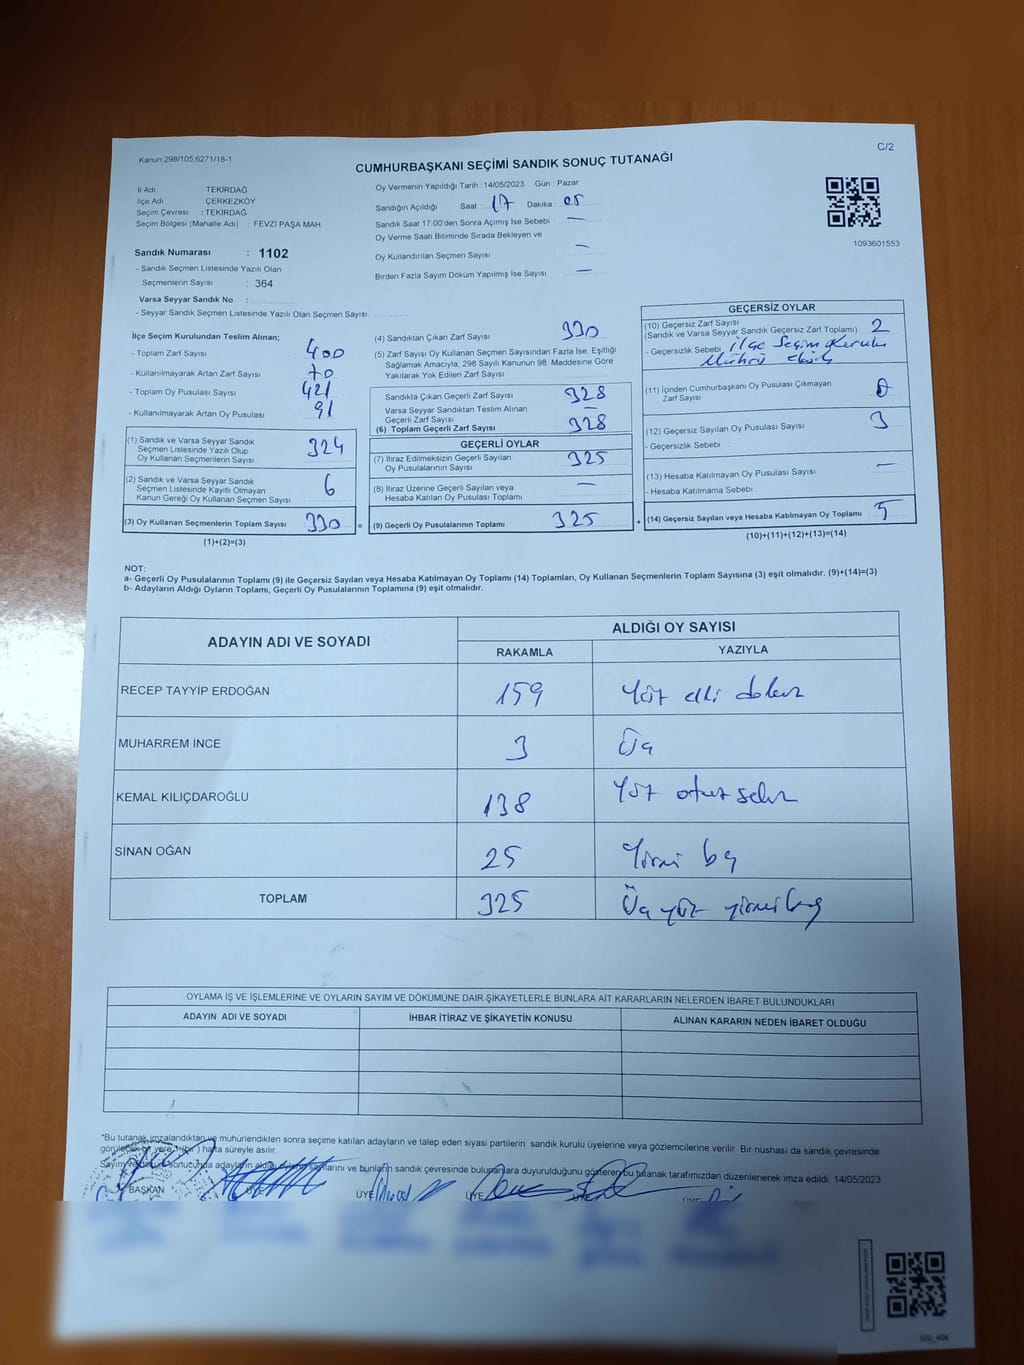 Kanun:298/105,6271/18-1
C/2
CUMHURBAŞKANI SEÇİMİ SANDIK SONUÇ TUTANAĞI
İl Adı : TEKİRDAĞ
İlçe Adı : ÇERKEZKÖY
Seçim Çevresi : TEKİRDAĞ
Seçim Bölgesi (Mahalle Adı) : FEVZİ PAŞA MAH
Sandık Numarası : 1102
- Sandık Seçmen Listesinde Yazılı Olan
Seçmenlerin Sayısı : 364
Varsa Seyyar Sandık No :
- Seyyar Sandık Seçmen Listesinde Yazılı Olan Seçmen Sayısı:
Oy Vermenin Yapıldığı Tarih : 14/05/2023 Gün : Pazar
Sandığın Açıldığı Saat : 17 Dakika : 05
Sandık Saat 17:00'den Sonra Açımış İse Sebebi : —
Oy Verme Saati Bitiminde Sırada Bekleyen ve
Oy Kullandırılan Seçmen Sayısı : —
Birden Fazla Sayım Döküm Yapılmış İse Sayısı : —
1093601553
İlçe Seçim Kurulundan Teslim Alınan;
- Toplam Zarf Sayısı : 400
- Kullanılmayarak Artan Zarf Sayısı : 70
- Toplam Oy Pusulası Sayısı : 421
- Kullanılmayarak Artan Oy Pusulası : 91
(1) Sandık ve Varsa Seyyar Sandık
Seçmen Listesinde Yazılı Olup
Oy Kullanan Seçmenlerin Sayısı : 324
(2) Sandık ve Varsa Seyyar Sandık
Seçmen Listesinde Kayıtlı Olmayan
Kanun Gereği Oy Kullanan Seçmen Sayısı : 6
(3) Oy Kullanan Seçmenlerin Toplam Sayısı : 330 =
(1)+(2)=(3)
(4) Sandıktan Çıkan Zarf Sayısı : 330
(5) Zarf Sayısı Oy Kullanan Seçmen Sayısından Fazla İse, Eşitliği
Sağlamak Amacıyla, 298 Sayılı Kanunun 98. Maddesine Göre
Yakılarak Yok Edilen Zarf Sayısı :
Sandıkta Çıkan Geçerli Zarf Sayısı : 328
Varsa Seyyar Sandıktan Teslim Alınan
Geçerli Zarf Sayısı : —
(6) Toplam Geçerli Zarf Sayısı : 328
GEÇERLİ OYLAR
(7) İtiraz Edilmeksizin Geçerli Sayılan
Oy Pusulalarının Sayısı : 325
(8) İtiraz Üzerine Geçerli Sayılan veya
Hesaba Katılan Oy Pusulası Toplamı : —
(9) Geçerli Oy Pusulalarının Toplamı : 325 +
GEÇERSİZ OYLAR
(10) Geçersiz Zarf Sayısı
(Sandık ve Varsa Seyyar Sandık Geçersiz Zarf Toplamı) : 2
- Geçersizlik Sebebi : ilçe Seçim Kurulu
Mührü eksik
(11) İçinden Cumhurbaşkanı Oy Pusulası Çıkmayan
Zarf Sayısı : 0
(12) Geçersiz Sayılan Oy Pusulası Sayısı : 3
- Geçersizlik Sebebi :
(13) Hesaba Katılmayan Oy Pusulası Sayısı : —
- Hesaba Katılmama Sebebi :
(14) Geçersiz Sayılan veya Hesaba Katılmayan Oy Toplamı : 5
(10)+(11)+(12)+(13)=(14)
NOT:
a- Geçerli Oy Pusulalarının Toplamı (9) ile Geçersiz Sayılan veya Hesaba Katılmayan Oy Toplamı (14) Toplamları, Oy Kullanan Seçmenlerin Toplam Sayısına (3) eşit olmalıdır. (9)+(14)=(3)
b- Adayların Aldığı Oyların Toplamı, Geçerli Oy Pusulalarının Toplamına (9) eşit olmalıdır.
ADAYIN ADI VE SOYADI
ALDIĞI OY SAYISI
RAKAMLA YAZIYLA
RECEP TAYYİP ERDOĞAN 159 Yüz elli dokuz
MUHARREM İNCE 3 Üç
KEMAL KILIÇDAROĞLU 138 Yüz otuz sekiz
SİNAN OĞAN 25 Yirmi beş
TOPLAM 325 Üç yüz yirmi beş
OYLAMA İŞ VE İŞLEMLERİNE VE OYLARIN SAYIM VE DÖKÜMÜNE DAİR ŞİKAYETLERLE BUNLARA AİT KARARLARIN NELERDEN İBARET BULUNDUKLARI
ADAYIN ADI VE SOYADI İHBAR İTİRAZ VE ŞİKAYETİN KONUSU ALINAN KARARIN NEDEN İBARET OLDUĞU
*Bu tutanak imzalandıktan ve mühürlendikten sonra seçime katılan adayların ve talep eden siyasi partilerin sandık kurulu üyelerine veya gözlemcilerine verilir. Bir nüshası da sandık çevresinde
görülecek bir yere 1 (bir) hafta süreyle asılır.
Sayım ve döküm sonucunda adayların aldığı oyların sayılarını ve bunların sandık çevresinde bulunanlara duyurulduğunu gösteren bu tutanak tarafımızdan düzenlenerek imza edildi. 14/05/2023
BAŞKAN ÜYE ÜYE ÜYE ÜYE ÜYE